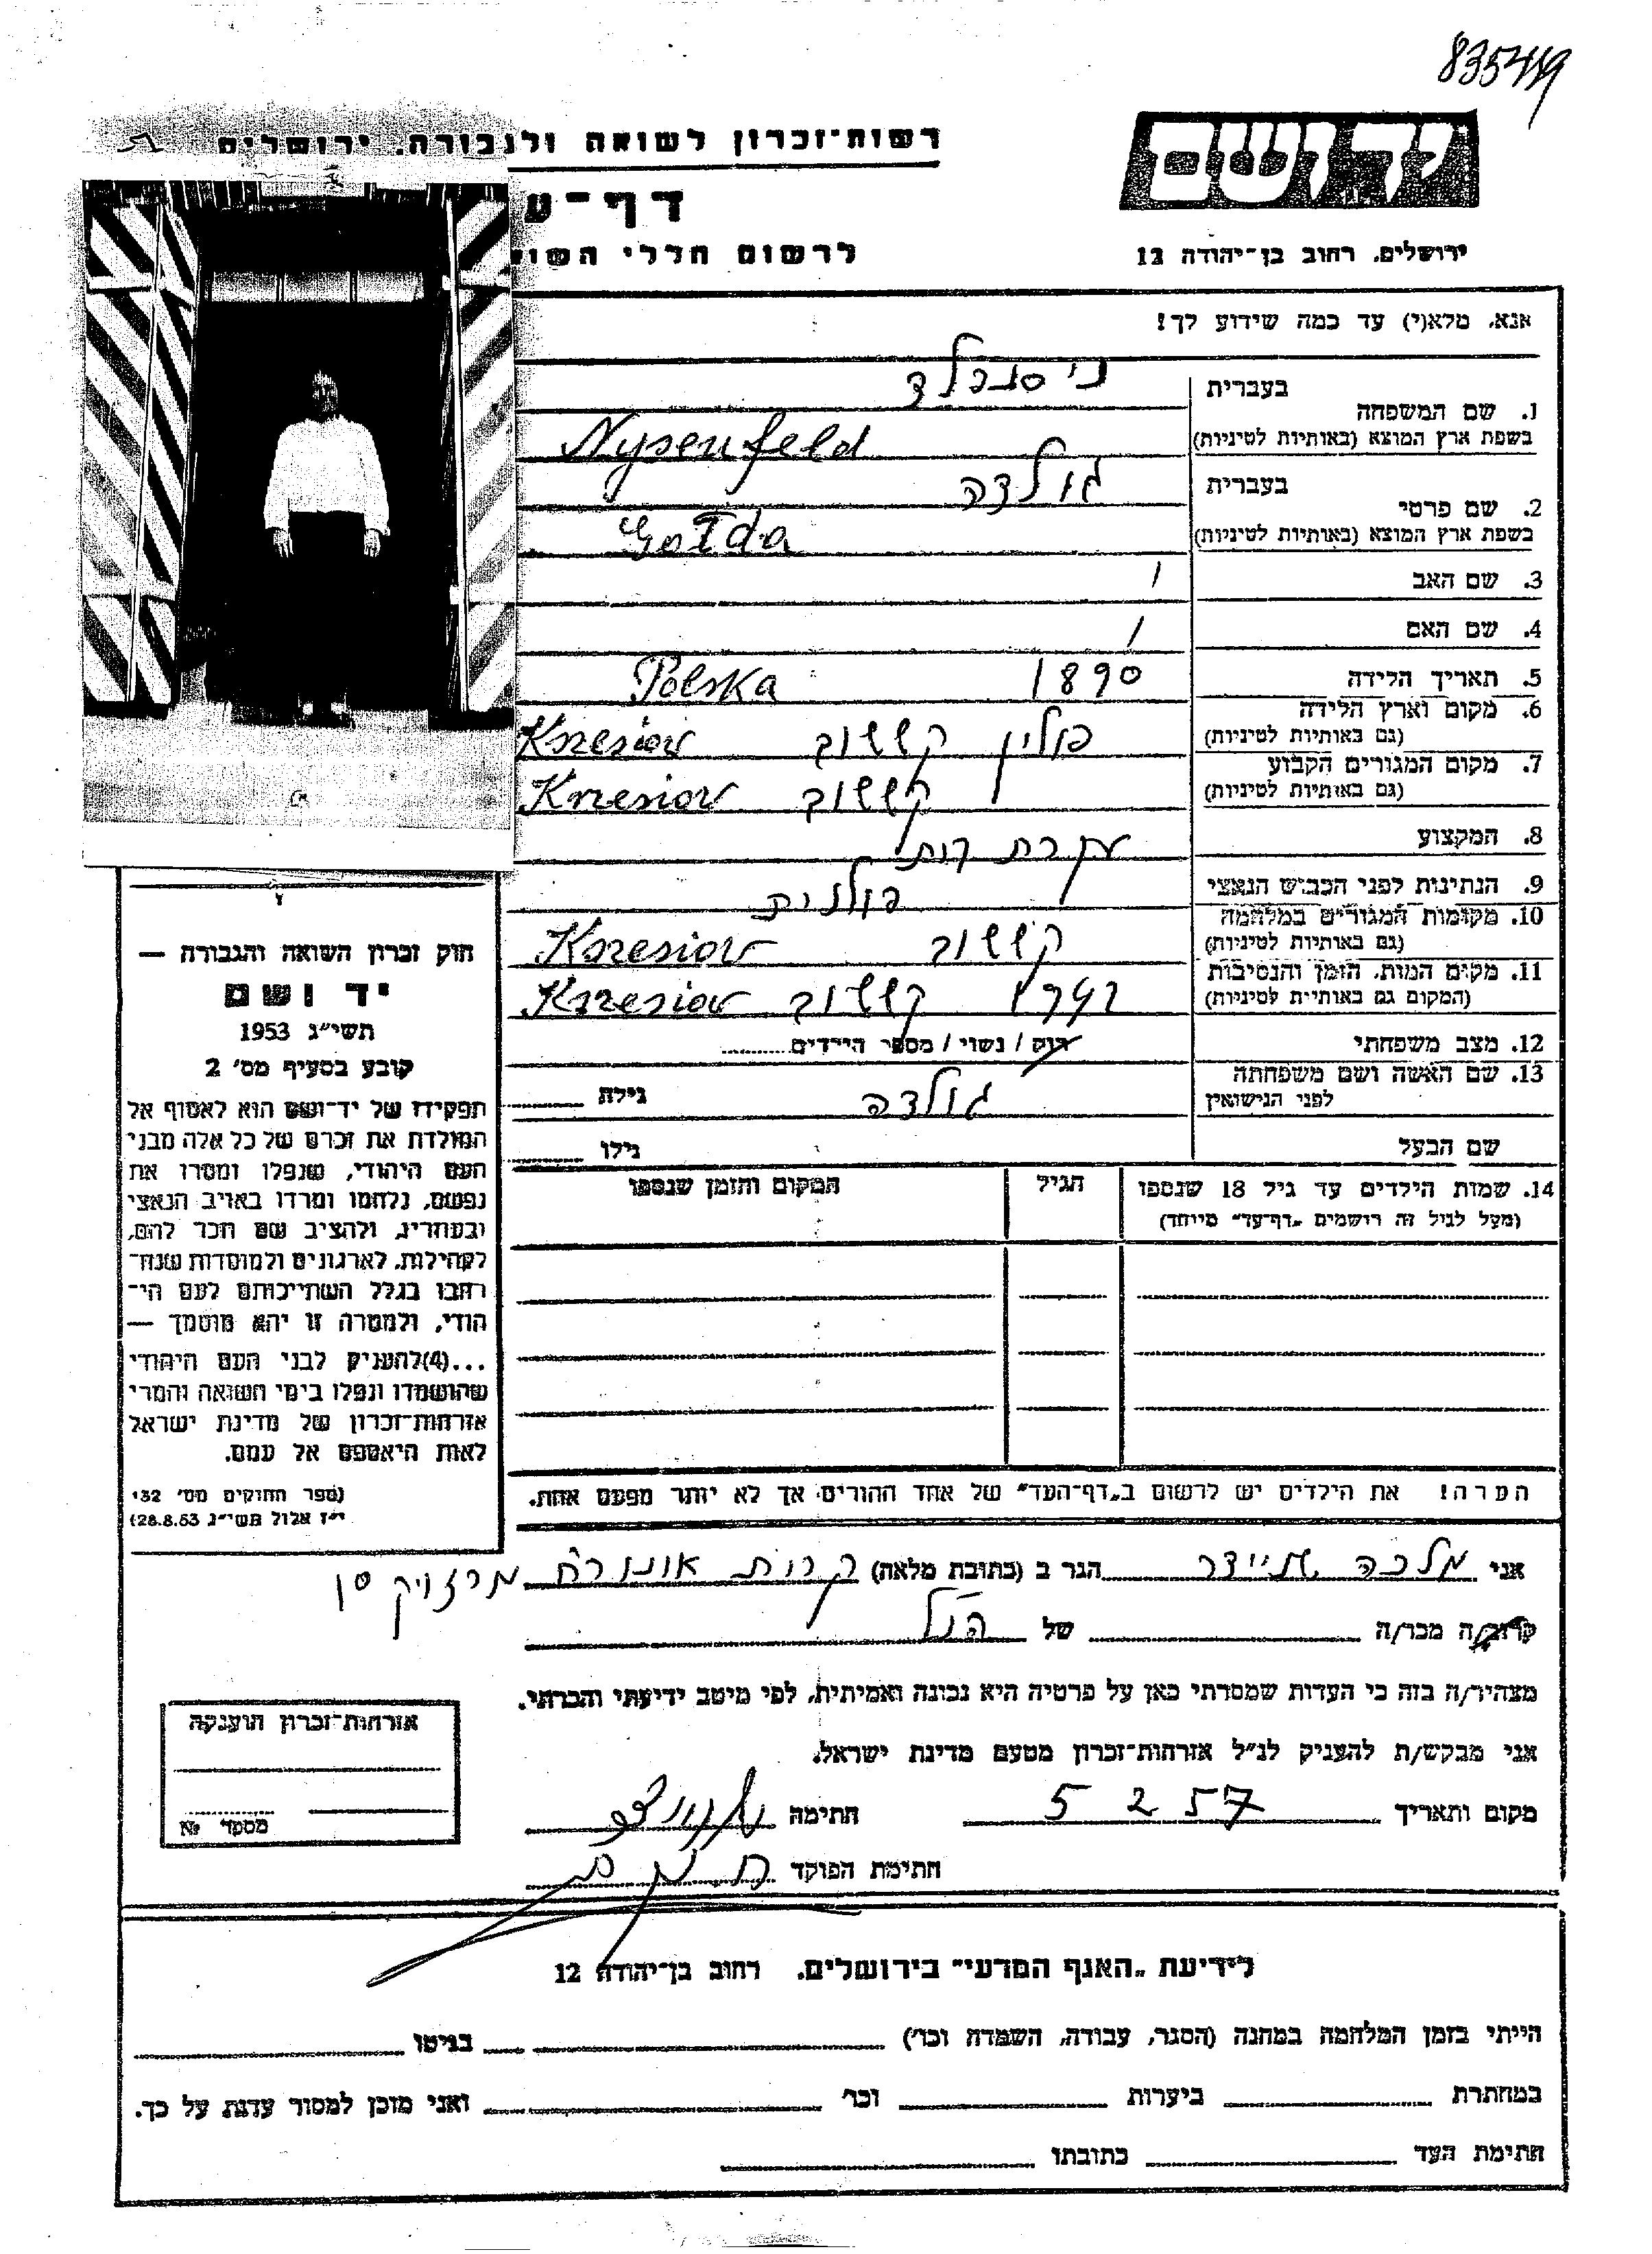 835419
רשות־זכרון לשואה ולגבורה, ירושלים
יד ושם
דף־ע
לרשום חללי השוא
ירושלים, רחוב בן־יהודה 12
אנא, מלא(י) עד כמה שידוע לך!
1. שם המשפחה בעברית ניסנפלד
בשפת ארץ המוצא (באותיות לטיניות) Nysenfeld
2. שם פרטי בעברית גולדה
בשפת ארץ המוצא (באותיות לטיניות) Gołda
3. שם האב /
4. שם האם /
5. תאריך הלידה 1890 Polska
6. מקום וארץ הלידה (גם באותיות לטיניות) פולין קששוב Krzesiov
7. מקום המגורים הקבוע (גם באותיות לטיניות) קששוב Krzesiov
8. המקצוע עקרת בית
9. הנתינות לפני הכבוש הנאצי פולנית
10. מקומות המגורים במלחמה (גם באותיות לטיניות) קששוב Krzesiov
11. מקום המות, הזמן והנסיבות (המקום גם באותיות לטיניות) קששוב Krzesiov
12. מצב משפחתי רווק / נשוי / מספר הילדים
13. שם האשה ושם משפחתה לפני הנישואין גולדה גילה
שם הבעל גילו
14. שמות הילדים עד גיל 18 שנספו (מעל לגיל זה רושמים „דף־עד" מיוחד) הגיל המקום והזמן שנספו
הערה! את הילדים יש לרשום ב„דף־העד" של אחד ההורים אך לא יותר מפעם אחת.
חוק זכרון השואה והגבורה —
יד ושם
תשי"ג 1953
קובע בסעיף מס' 2
תפקידו של יד־ושם הוא לאסוף אל
המולדת את זכרם של כל אלה מבני
העם היהודי, שנפלו ומסרו את
נפשם, נלחמו ומרדו באויב הנאצי
ובעוזריו, ולהציב שם וזכר להם,
לקהילות, לארגונים ולמוסדות שנח־
רבו בגלל השתייכותם לעם הי־
הודי, ולמטרה זו יהא מוסמך —
...(4) להעניק לבני העם היהודי
שהושמדו ונפלו בימי השואה והמרי
אזרחות־זכרון של מדינת ישראל
לאות היאספם אל עמם.
(ספר החוקים מס' 132
י"ז אלול תשי"ג 28.8.53)
אני מלכה הגר ב (כתובת מלאה) קרית
קרוב/ה מכר/ה של הנ"ל
מצהיר/ה בזה כי העדות שמסרתי כאן על פרטיה היא נכונה ואמיתית, לפי מיטב ידיעתי והכרתי.
אני מבקש/ת להעניק לנ"ל אזרחות־זכרון מטעם מדינת ישראל.
מקום ותאריך 5 2 57 חתימה
חתימת הפוקד
אזרחות־זכרון הוענקה
מספר №
לידיעת „האגף המדעי" בירושלים, רחוב בן־יהודה 12
הייתי בזמן המלחמה במחנה (הסגר, עבודה, השמדה וכו') בגיטו
במחתרת ביערות וכו' ואני מוכן למסור עדות על כך.
חתימת העד כתובתו